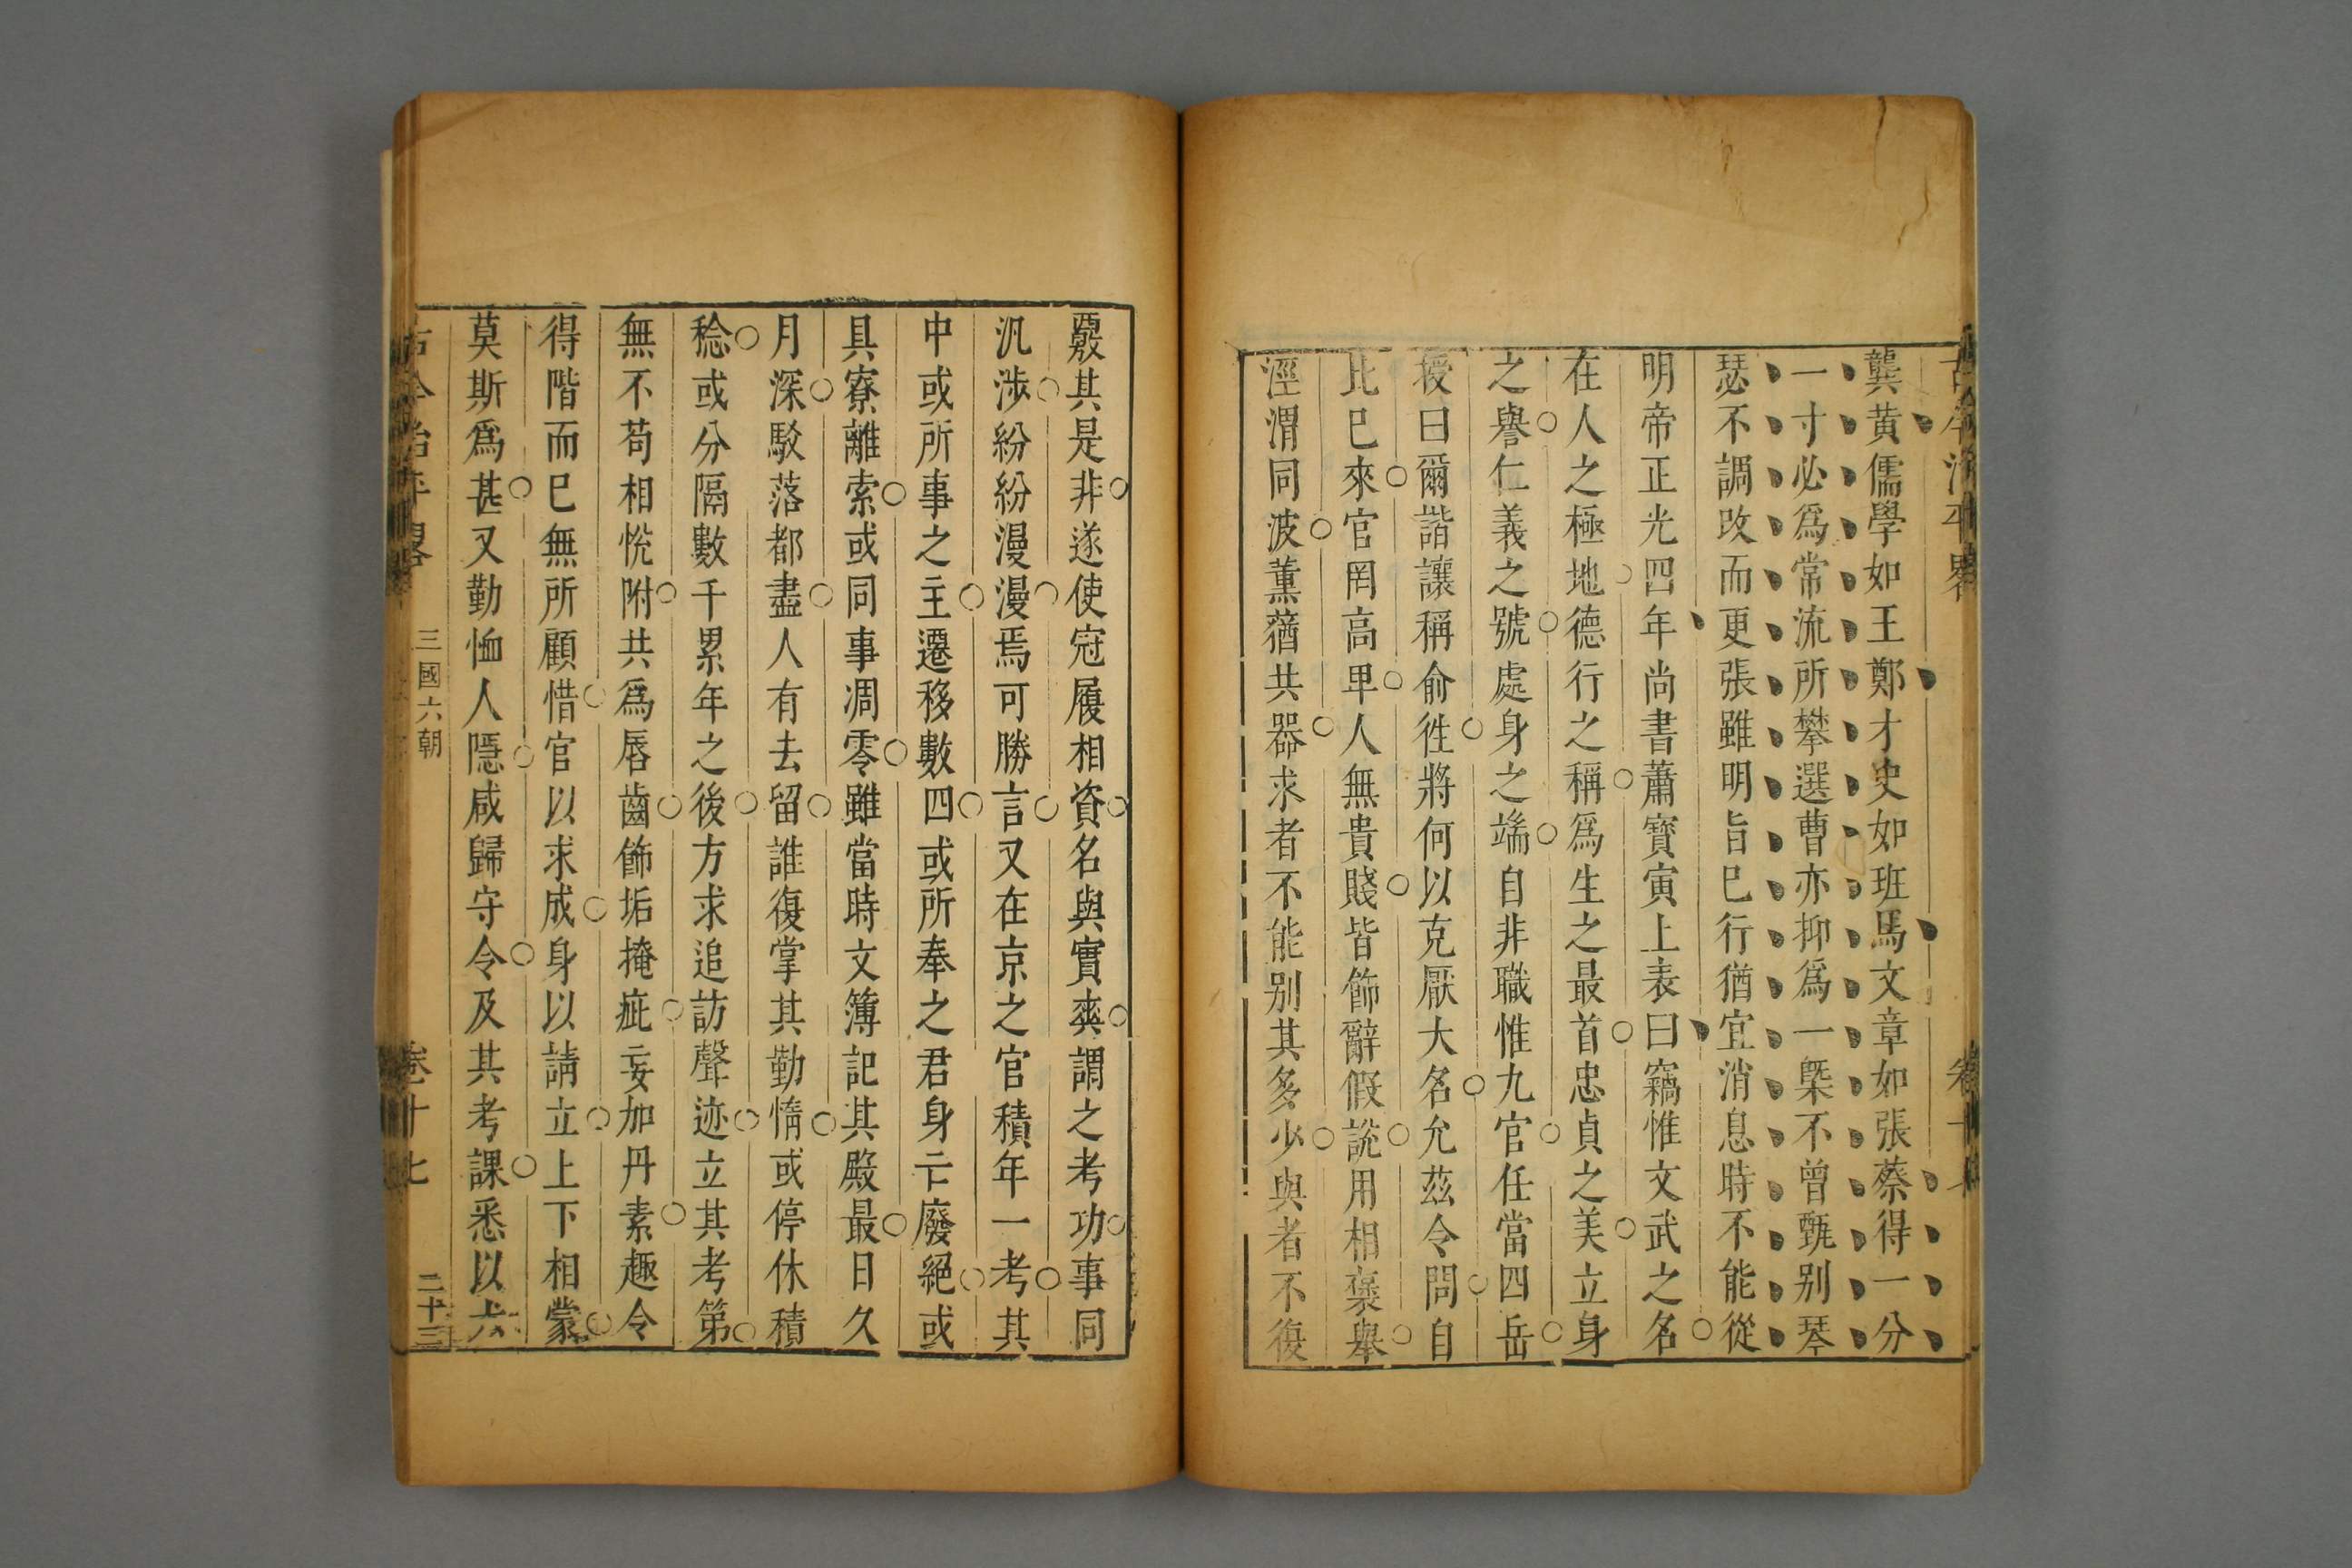 龔黄儒學如王鄭才史如班馬文章如張蔡得一分
一寸必爲常流所攀選曹亦抑爲一槩不曾甄别琴
瑟不調改而更張雖明旨已行猶宜消息時不能從
明帝正光四年尚書蕭寳寅上表曰竊惟文武之名
在人之極地德行之稱爲生之最首忠貞之美立身
之譽仁義之號處身之端自非職惟九官任當四岳
授曰爾諧讓稱俞徃將何以克厭大名允茲令問自
比巳來官罔高卑人無貴賤皆飾辭假說用相褒舉
涇渭同波薰蕕共器求者不能别其多少與者不復
覈其是非遂使冠履相資名與實爽謂之考功事同
汎涉紛紛漫漫焉可勝言又在京之官積年一考其
中或所事之主遷移數四或所奉之君身亡廢絕或
具寮離索或同事凋零雖當時文簿記其殿最日久
月深駁落都盡人有去留誰復掌其勤惰或停休積
稔或分隔數千累年之後方求追訪聲迹立其考第
無不苟相悅附共爲唇齒飾垢掩疵妄加丹素趣令
得階而巳無所顧惜官以求成身以請立上下相蒙
莫斯爲甚又勤恤人隱咸歸守令及其考課悉以六
古今治平畧
三國六朝
卷十七
二十三